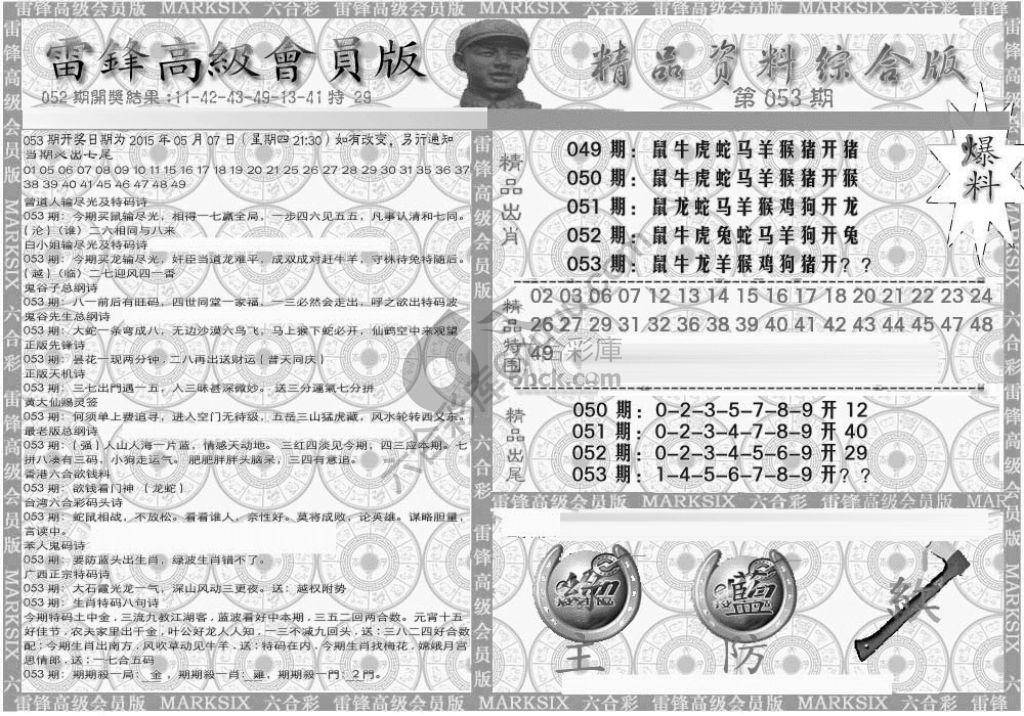 雷锋高级会员版 MARKSIX 六合彩 雷锋高级会员版 MARKSIX 六合彩 雷锋高级会员版 MARKSIX 六合彩 雷锋
雷鋒高級會員版
精品资料综合版
052期開獎結果:11-42-43-49-13-41特 29
第 053 期
爆料
053期开奖日期为2015年05月07日(星期四21:30)如有改变，另行通知
当期必出七尾
01 05 06 07 08 09 10 11 15 16 17 18 19 20 21 25 26 27 28 29 30 31 35 36 37
38 39 40 41 45 46 47 48 49
曾道人输尽光及特码诗
053期：今期买鼠输尽光，相得一七赢全局，一步四六见五五，凡事认清和七同。
{沧}(谁）二六相同与八来
白小姐输尽光及特码诗
053期：今期买龙输尽光，奸臣当道龙难平，成双成对赶牛羊，守株待兔特随后。
{越}(临）二七迎风四一香
鬼谷子总纲诗
053期：八一前后有旺码，四世同堂一家福，一三必然会走出，呼之欲出特码波
鬼谷先生总纲诗
053期：大蛇一条弯成八，无边沙漠六鸟飞，马上猴下蛇必开，仙鹤空中来观望
正版先锋诗
053期：昙花一现两分钟．二八再出送财运{普天同庆}
正版天机诗
053期：三七出門遇一五，人三昧甚深微妙。送三分運氣七分拼
黄大仙赐灵签
053期：何须单上费追寻，进入空门无待级，五岳三山猛虎藏，风水轮转西又东。
最老版总纲诗
053期：{强}人山人海一片蓝，情感天动地。 三红四淡见今期，四三应本期。七
拼八凑有三码，小狗走运气。 肥肥胖胖头脑呆，三四有意追。
香港六合欲钱料
053期：欲钱看门神 {龙蛇}
台湾六合彩码头诗
053期：蛇鼠相战，不放松。看看谁人，奈性好。莫将成败，论英雄。谋略胆量，
言读中。
本人鬼码诗
053期：要防蓝头出生肖，绿波生肖错不了。
广西正宗特码诗
053期：大石霞光龙一气，深山风动三更夜。送：越权附势
053期：生肖特码八句诗
今期特码土中金．三流九教江湖客，蓝波看好中本期．三五二回两合数。元宵十五
好佳节．农夫家里出千金．叶公好龙人人知．一三不减九回头．送：三八二四好合数
配：今期生肖出南方．风吹草动见牛羊．送：特码在内．今期生肖找梅花．嫦娥月宫
思情郎．送：一七合五码
053期：期期殺一局：金，期期殺一肖：雞，期期殺一門：2門。
精品出肖
049 期：鼠牛虎蛇马羊猴猪开猪
050 期：鼠牛虎蛇马羊狗猪开猴
051 期：鼠龙蛇马羊猴鸡狗开龙
052 期：鼠牛虎兔蛇马羊狗开兔
053 期：鼠牛龙羊猴鸡狗猪开? ?
精品特围
02 03 06 07 12 13 14 15 16 17 18 20 21 22 23 24
26 27 29 31 32 36 38 39 40 41 42 43 44 45 47 48
49
六合彩库
6hck.com
精品出尾
050 期：0-2-3-5-7-8-9 开 12
051 期：0-2-3-4-7-8-9 开 40
052 期：0-2-3-4-5-6-9 开 29
053 期：1-4-5-6-7-8-9 开? ?
雷锋高级会员版 MARKSIX 六合彩 雷锋高级会员版 MARKSIX
主
藍
防
雷锋高级会员版 MARKSIX 六合彩 雷锋高级会员版 MARKSIX 六合彩 雷锋高级会员版 MARKSIX 六合彩 雷锋